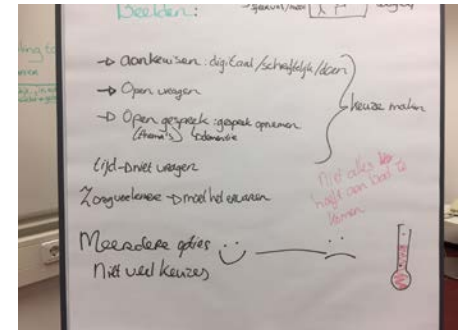 Beelden:
→ aankruisen: digitaal/schriftelijk/doen
→ Open vragen
→ Open gesprek: gesprek opnemen
(thema's) dementie
keuze maken
tijd → niet vragen
Zorgverlener → moet het ervaren
Niet alles
hoeft aan bod te
komen
Meerdere opties
Niet veel keuzes